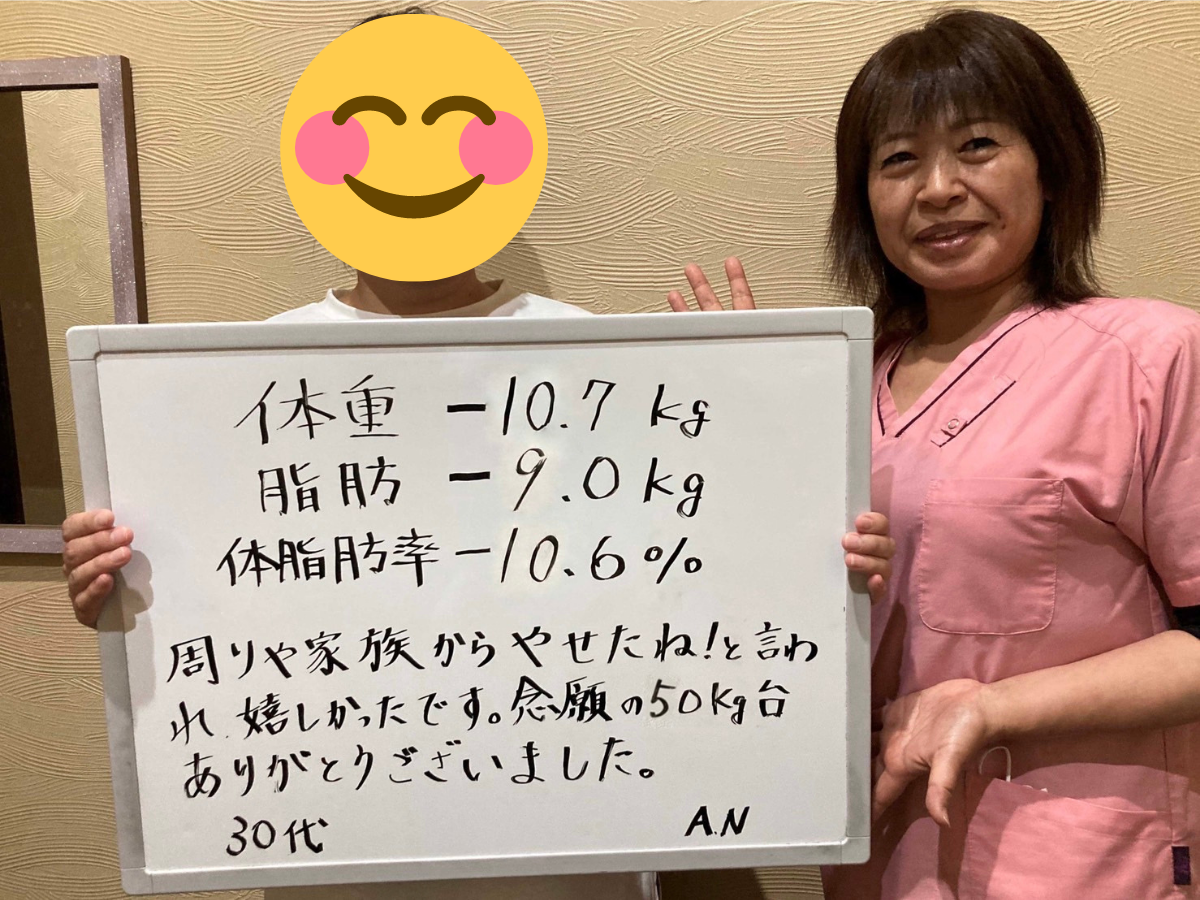 体重 -10.7 kg
脂肪 -9.0 kg
体脂肪率 -10.6%
周りや家族からやせたね!と言わ
れ嬉しかったです。念願の50kg台
ありがとうございました。
30代 A.N